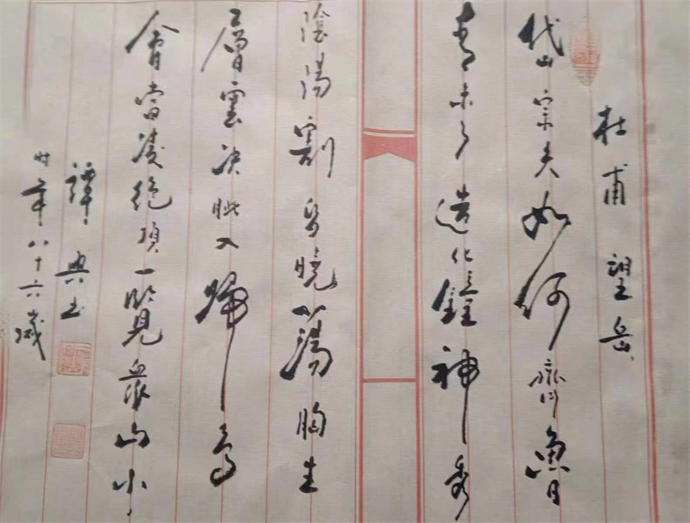 杜甫望岳
岱宗夫如何齊魯
青未了造化鍾神秀
陰陽割昏曉蕩胸生
層雲决眦入歸鳥
會當凌絕頂一覽衆山小
譚
时年八十六歲